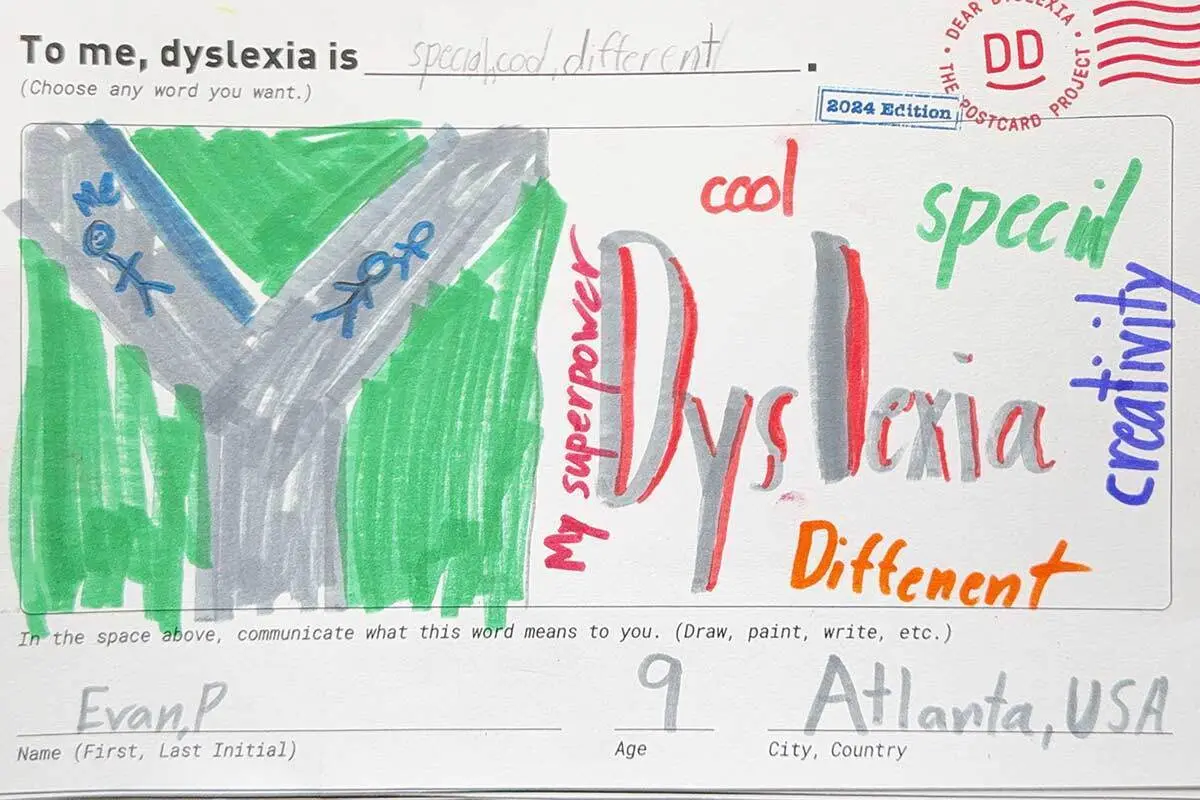 To me, dyslexia is special,cool,different.
(Choose any word you want.)
DEAR DYSLEXIA • THE POSTCARD PROJECT •
DD
2024 Edition
Me
cool
special
My superpower
Dyslexia
creativity
Different
In the space above, communicate what this word means to you. (Draw, paint, write, etc.)
Evan,P
9
Atlanta, USA
Name (First, Last Initial)
Age
City, Country